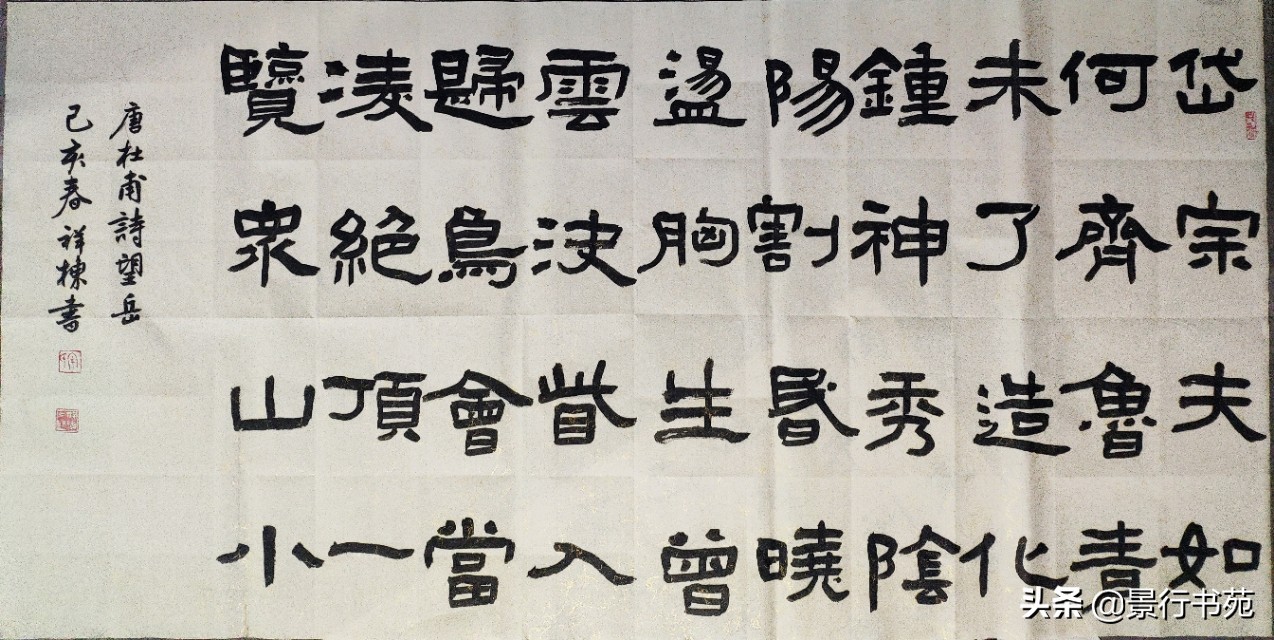 岱宗夫如
何齊魯青
未了造化
鍾神秀陰
陽割昬曉
盪胸生曾
雲決眥入
歸鳥會當
凌絕頂一
覽眾山小
唐杜甫詩望岳
己亥春祥棟書
头条 @景行书苑